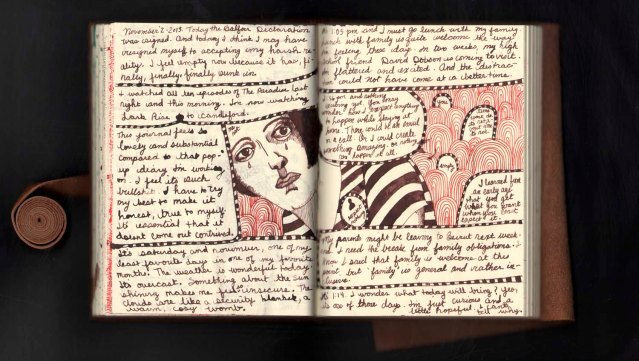 November 2 2013. Today the Balfour Declaration
was signed. And today I think I may have
resigned myself to accepting my harsh re-
ality. I feel empty now because it has, fi-
nally, finally, finally sunk in.
I watched all ten episodes of The Paradise last
night and this morning. I'm now watching
Lark Rise to Candleford.
This journal feels so
lovely and substantial
compared to that pop-
up diary I'm working
on. I feel its such
bullshit. I have to try
my best to make it
honest, true to myself.
Its essential that it
doesnt come out contrived.
It's saturday and november, one of my
least favorite days in one of my favorite
months. The weather is wonderful today.
Its overcast. Something about the sun
shining makes me feel insecure. The
clouds are like a security blanket, a
warm, cosy womb.
1:03 pm and I must go lunch with my family
lunch with family is quite welcome the way
I'm feeling these days. In two weeks, my high
school friend David Dobson is coming to visit.
I'm flattered and excited. And the distrac-
tion could not have come at a better time.
pm and nothing
exciting yet. You may
wonder how I expect anything
to happen while staying at
home. There could be an email
or a call. Or I could create
something amazing. or nothing
can happen at all.
you
I learned from
an early age
that you get
what you want
when you least
expect it.
My parents might be leaving to Beirut next week
and I need the break from family obligations. I
know I said that family is welcome at this
point but 'family' is general and rather in-
clusive.
It's 1:14. I wonder what today will bring? Yes,
its one of those days. I'm just curious and a
little hopeful. I can't
tell why.